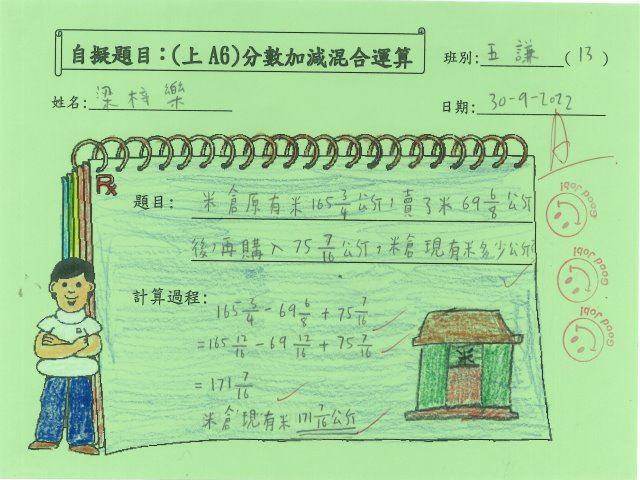 自擬題目：(上 A6)分數加減混合運算
班別: 五謙 (13)
姓名: 梁梓樂
日期: 30-9-2022
A
Rx
題目： 米倉原有米165 3/4 公斤，賣了米 69 6/8 公斤
後，再購入 75 7/16 公斤，米倉現有米多少公斤?
計算過程:
165 3/4 - 69 6/8 + 75 7/16
=165 12/16 - 69 12/16 + 75 7/16
= 171 7/16
米倉現有米 171 7/16 公斤
米
Good Job!
Good Job!
Good Job!